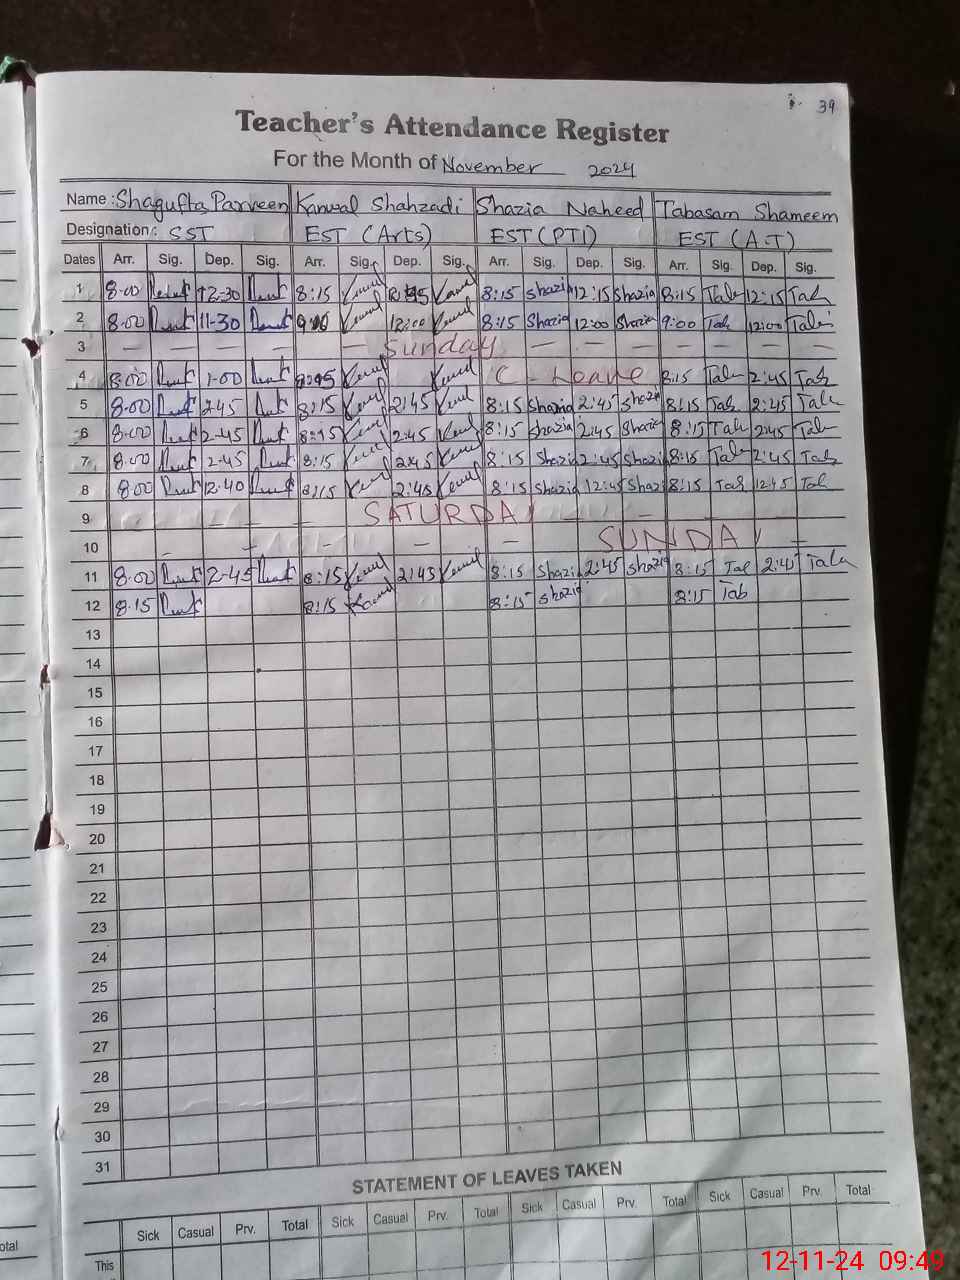 39
Teacher's Attendance Register
For the Month of November 2024
Name : Shagufta Parveen Kanwal Shahzadi Shazia Naheed Tabasam Shameem
Designation : SST EST (Arts) EST (PTI) EST (A.T)
Dates Arr. Sig. Dep. Sig. Arr. Sig. Dep. Sig. Arr. Sig. Dep. Sig. Arr. Sig. Dep. Sig.
1 8-00 12-30 8:15 8:15 Shazia 12:15 Shazia 8:15 Tab 12:15 Tab
2 8-00 11-30 12:00 8:15 Shazia 12:00 Shazia 9:00 Tab 12:00 Tab
3 — — — — — Sunday — — — — — — —
4 8-00 1-00 C - Leave 8:15 Tab 2:45 Tab
5 8-00 2-45 8:15 2:45 8:15 Shazia 2:45 Shazia 8:15 Tab 2:45 Tab
6 8-00 2-45 8:15 2:45 8:15 Shazia 2:45 Shazia 8:15 Tab 2:45 Tab
7 8-00 2-45 8:15 2:45 8:15 Shazia 2:45 Shazia 8:15 Tab 2:45 Tab
8 8-00 12-40 8:15 2:45 8:15 Shazia 12:45 Shazia 8:15 Tab 12:45 Tab
9 SATURDAY
10 SUNDAY
11 8-00 2-45 8:15 2:45 8:15 Shazia 2:45 Shazia 8:15 Tab 2:45 Tab
12 8-15 8:15 8:15 Shazia 8:15 Tab
13
14
15
16
17
18
19
20
21
22
23
24
25
26
27
28
29
30
31
STATEMENT OF LEAVES TAKEN
Sick Casual Prv. Total Sick Casual Prv. Total Sick Casual Prv. Total Sick Casual Prv. Total
This
otal
12-11-24 09:49